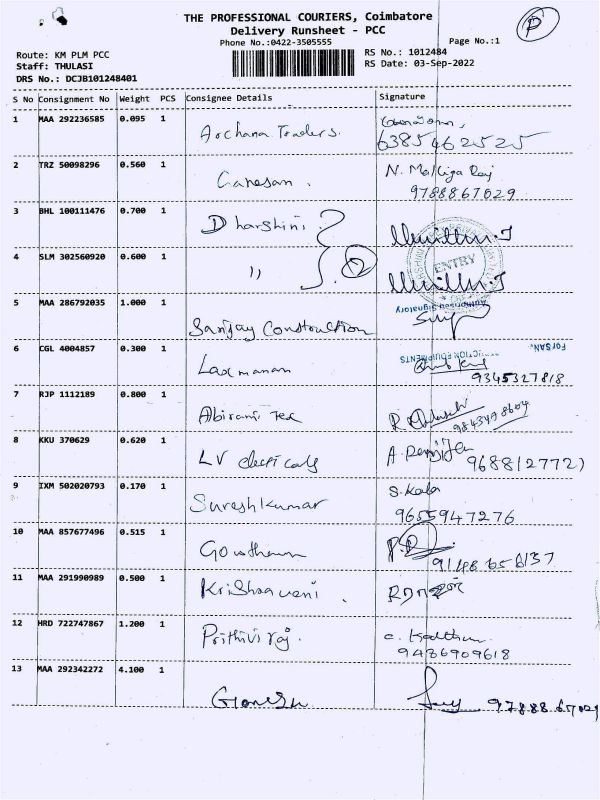 THE PROFESSIONAL COURIERS, Coimbatore
Delivery Runsheet - PCC
Phone No.:0422-3505555
Page No.:1
P
Route: KM PLM PCC
Staff: THULASI
DRS No.: DCJB101248401
RS No.: 1012484
RS Date: 03-Sep-2022
S No Consignment No Weight PCS Consignee Details Signature
1 MAA 292236585 0.095 1 Archana Traders.
6385462525
2 TRZ 50098296 0.560 1 Ganesan. N. Malliga Raj
9788867029
3 BHL 100111476 0.700 1 Dharshini
ENTRY
4 SLM 302560920 0.600 1 " 2
Authorised Signatory
5 MAA 286792035 1.000 1 Sanjay Construction
For SAN
CTION EQUIPMENTS
6 CGL 4004857 0.300 1 Laxmanan
9345327818
7 RJP 1112189 0.800 1 Abirami Tex
9843498604
8 KKU 370629 0.620 1 LV electricals A
9688127721
9 IXM 502020793 0.170 1 Sureshkumar S. Kala
9655947276
10 MAA 857677496 0.515 1 Gowtham
9148656137
11 MAA 291990989 0.500 1 Krishnaveni.
12 HRD 722747867 1.200 1 Prithiviraj.
9486909618
13 MAA 292342272 4.100 1 Ganesh 9788867029